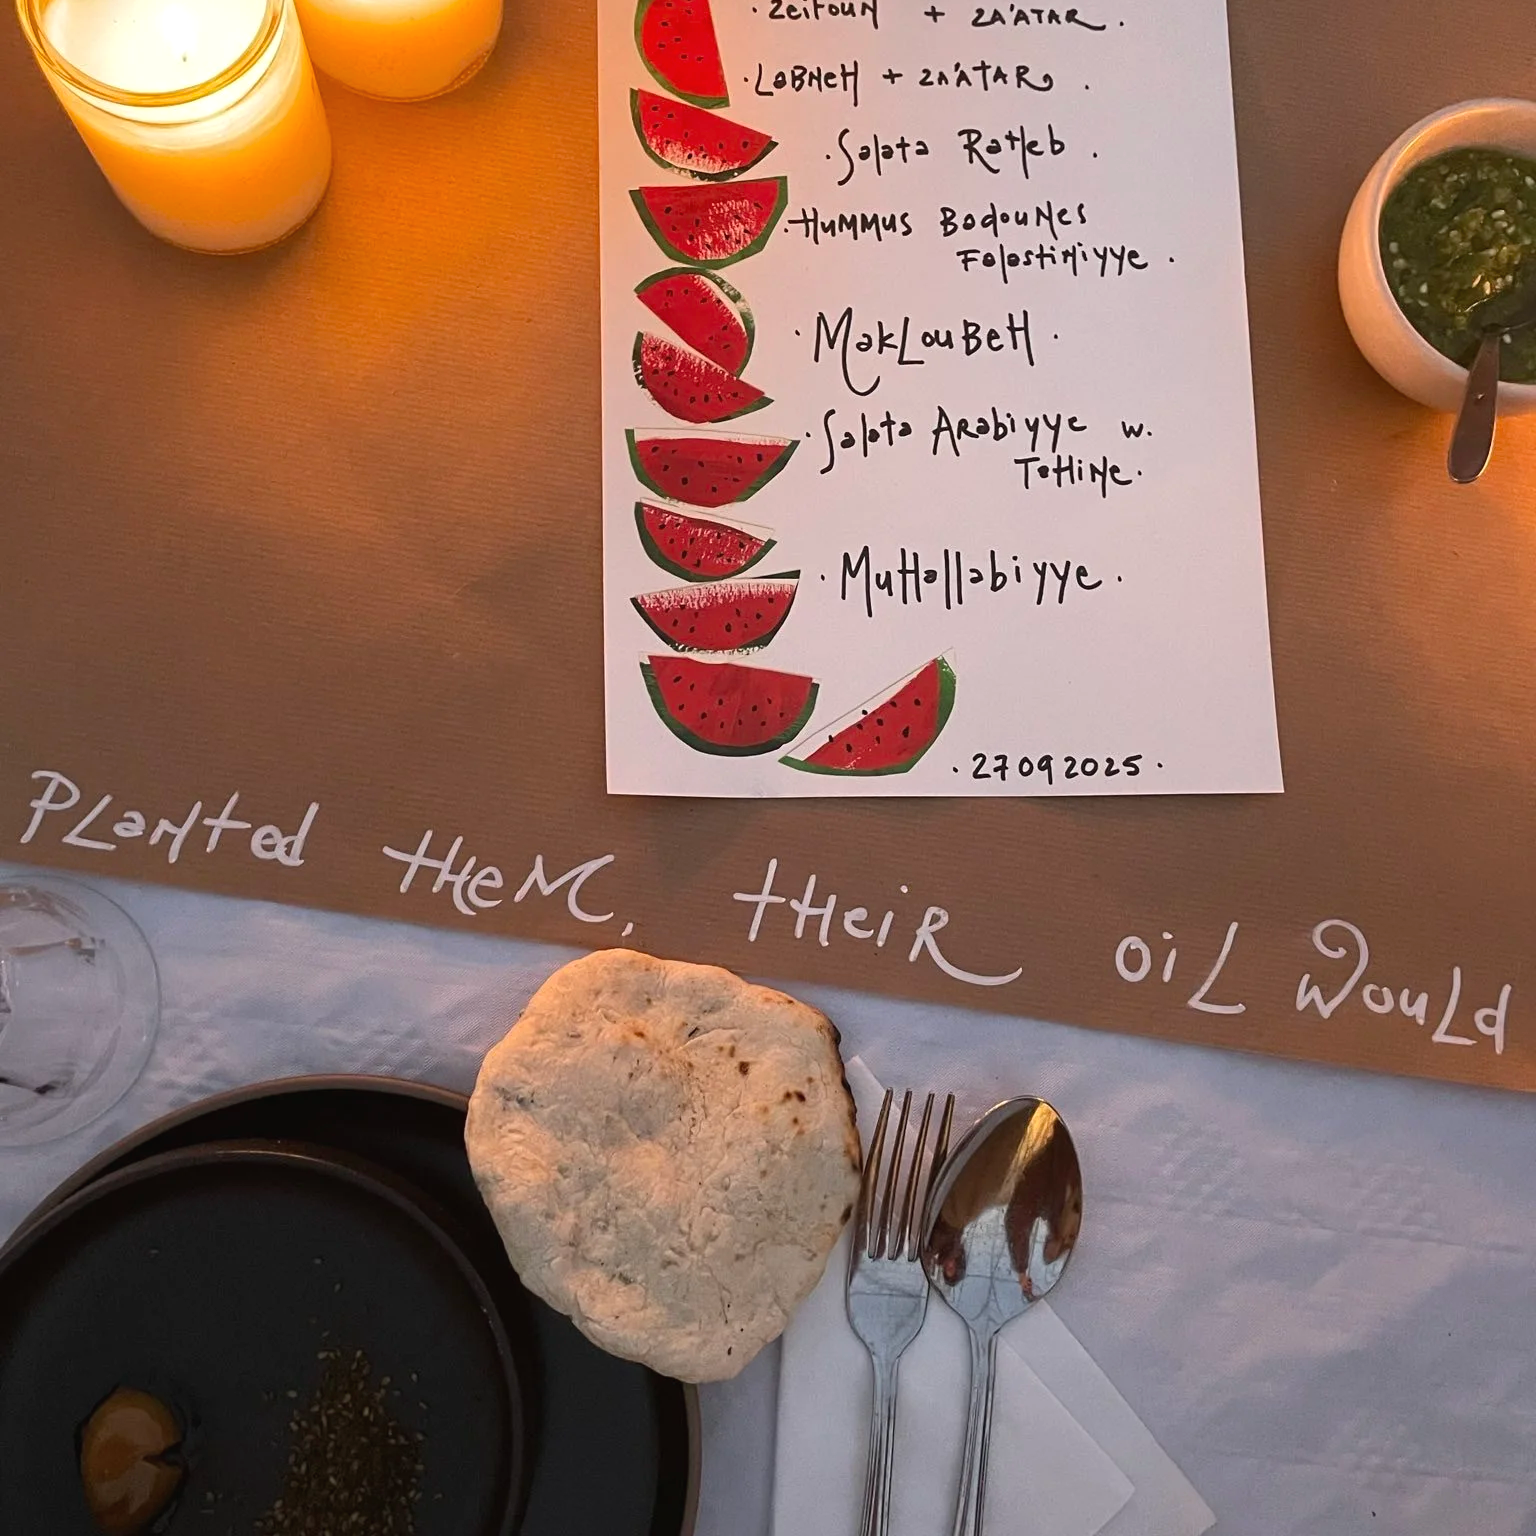 · Zeitoun + ZA'ATAR .
· LaBNeH + ZA'ATAR .
· Salata Ratleb .
· HuMMus BadouNes
Falastiniyye .
· MakLouBeH .
· Salata Arabiyye w.
TaHiNe .
· MuHallabiyye .
· 27092025 .
PLaNted tHeM, tHeiR oiL WouLd